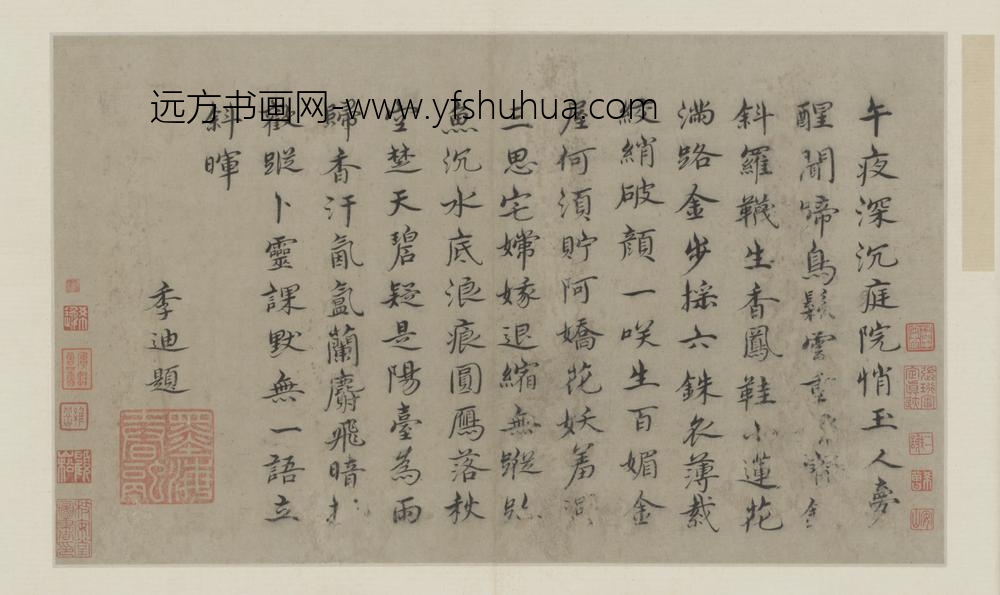 远方书画网-www.yfshuhua.com
午夜深沉庭院悄玉人夢
醒聞啼鳥鬆雲重
斜羅韈生香鳳鞋小蓮花
滿路金步搖六銖衣薄裁
綃破顏一笑生百媚金
屋何須貯阿嬌花妖羞
三思宅嫦娥退縮無蹤
魚沉水底浪痕圓鴈落秋
空楚天碧疑是陽臺為雨
歸香汗氤氳蘭麝飛暗
蹤卜靈課默無一語立
斜暉
季迪題